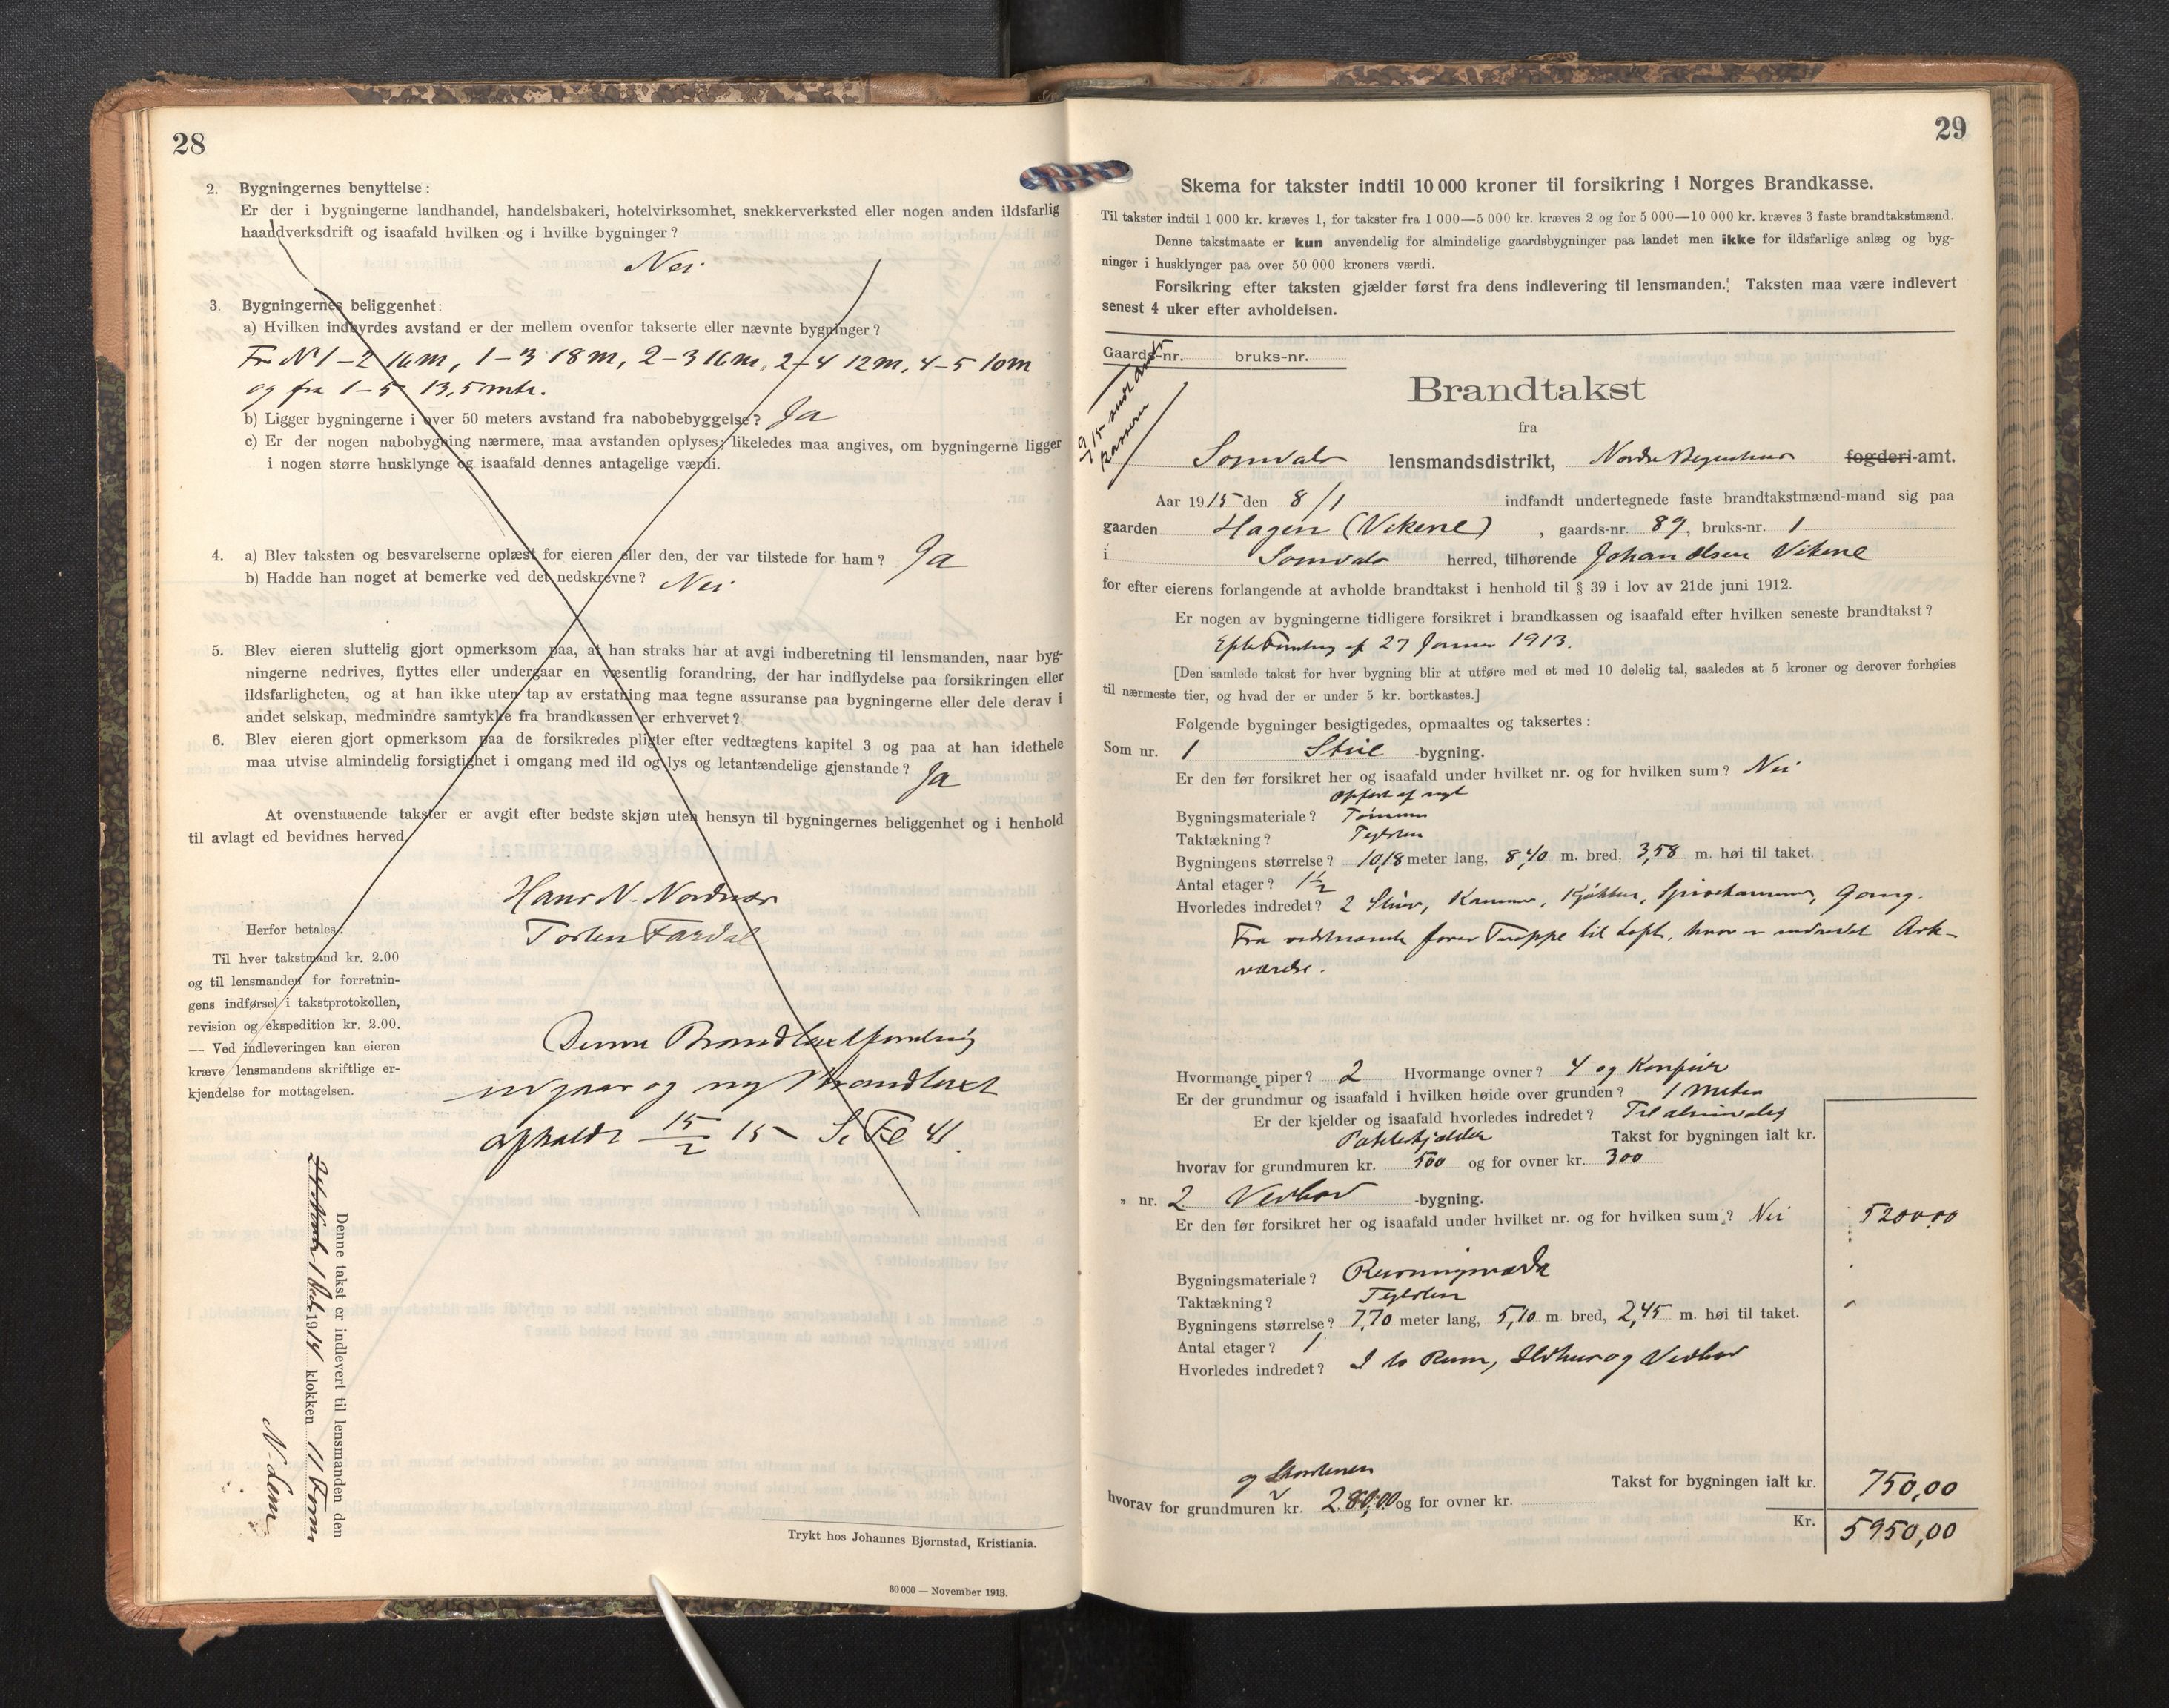 28
2. Bygningernes benyttelse:
Er der i bygningerne landhandel, handelsbakeri, hotelvirksomhet, snekkerverksted eller nogen anden ildsfarlig
haandverksdrift og isaafald hvilken og i hvilke bygninger?
Nei
3. Bygningernes beliggenhet:
a) Hvilken indbyrdes avstand er der mellem ovenfor takserte eller nævnte bygninger?
Fra No 1–2 16m, 1–3 18m, 2–3 16m, 2–4 12m, 4–5 10m
og fra 1–5 13,5 mtr.
b) Ligger bygningerne i over 50 meters avstand fra nabobebyggelse? Ja
c) Er der nogen nabobygning nærmere, maa avstanden oplyses; likeledes maa angives, om bygningerne ligger
i nogen større husklynge og isaafald dennes antagelige værdi.
4. a) Blev taksten og besvarelserne oplæst for eieren eller den, der var tilstede for ham? Ja
b) Hadde han noget at bemerke ved det nedskrevne? Nei
5. Blev eieren sluttelig gjort opmerksom paa, at han straks har at avgi indberetning til lensmanden, naar byg-
ningerne nedrives, flyttes eller undergaar en væsentlig forandring, der har indflydelse paa forsikringen eller
ildsfarligheten, og at han ikke uten tap av erstatning maa tegne assuranse paa bygningerne eller dele derav i
andet selskap, medmindre samtykke fra brandkassen er erhvervet?
6. Blev eieren gjort opmerksom paa de forsikredes pligter efter vedtægtens kapitel 3 og paa at han idethele
maa utvise almindelig forsigtighet i omgang med ild og lys og letantændelige gjenstande? Ja
At ovenstaaende takster er avgit efter bedste skjøn uten hensyn til bygningernes beliggenhet og i henhold
til avlagt ed bevidnes herved.
Hans N. Nordnæs
Torsten Fardal
Herfor betales:
Til hver takstmand kr. 2.00
og til lensmanden for forretnin-
gens indførsel i takstprotokollen,
revision og ekspedition kr. 2.00.
— Ved indleveringen kan eieren
kræve lensmandens skriftlige er-
kjendelse for mottagelsen.
Denne Brandtaxtforretning
utgaar og ny Brandtaxt
afholdt 15/2 15 Se 41
Denne takst er indlevert til lensmanden den
1914 klokken 11 Form
N. Lem
Trykt hos Johannes Bjørnstad, Kristiania.
30 000 — November 1913.
29
Skema for takster indtil 10 000 kroner til forsikring i Norges Brandkasse.
Til takster indtil 1 000 kr. kræves 1, for takster fra 1 000—5 000 kr. kræves 2 og for 5 000—10 000 kr. kræves 3 faste brandtakstmænd.
Denne takstmaate er kun anvendelig for almindelige gaardsbygninger paa landet men ikke for ildsfarlige anlæg og byg-
ninger i husklynger paa over 50 000 kroners værdi.
Forsikring efter taksten gjælder først fra dens indlevering til lensmanden. Taksten maa være indlevert
senest 4 uker efter avholdelsen.
Gaards-nr. bruks-nr.
Brandtakst
fra
Sogndals lensmandsdistrikt, Nordre Bergenhus fogderi-amt.
Aar 1915 den 8/1 indfandt undertegnede faste brandtakstmænd-mand sig paa
gaarden Hagen (Vikene), gaards-nr. 89, bruks-nr. 1
i Sogndals herred, tilhørende Johan Olsen Vikene
for efter eierens forlangende at avholde brandtakst i henhold til § 39 i lov av 21de juni 1912.
Er nogen av bygningerne tidligere forsikret i brandkassen og isaafald efter hvilken seneste brandtakst?
27 Januar 1913.
[Den samlede takst for hver bygning blir at utføre med et med 10 delelig tal, saaledes at 5 kroner og derover forhøies
til nærmeste tier, og hvad der er under 5 kr. bortkastes.]
Følgende bygninger besigtigedes, opmaaltes og taksertes:
Som nr. 1 Stue -bygning.
Er den før forsikret her og isaafald under hvilket nr. og for hvilken sum? Nei
opført af nyt
Bygningsmateriale? Tømmer
Taktækning? Teglsten
Bygningens størrelse? 10,18 meter lang, 8,40 m. bred, 3,58 m. høi til taket.
Antal etager? 1½
Hvorledes indredet? 2 Stuer, Kammer, Kjøkken, Spisekammer, Gang.
Fra sidstnævnte fører Trappe til Loft, hvor er indredet Ark-
værelse.
Hvormange piper? 2 Hvormange ovner? 4 og Komfuir
Er der grundmur og isaafald i hvilken høide over grunden? 1 Meter
Er der kjelder og isaafald hvorledes indredet? Til almindelig
Potetkjælder Takst for bygningen ialt kr.
hvorav for grundmuren kr. 500 og for ovner kr. 300
5200,00
" nr. 2 Vedbod -bygning.
Er den før forsikret her og isaafald under hvilket nr. og for hvilken sum? Nei
Bygningsmateriale? Reisningsværk
Taktækning? Teglsten
Bygningens størrelse? 7,70 meter lang, 5,10 m bred, 2,45 m. høi til taket.
Antal etager? 1
Hvorledes indredet? I to Rum, Ildhus og Vedbod
og Skorstenen Takst for bygningen ialt kr. 750,00
hvorav for grundmuren kr. 280,00 og for ovner kr.
Kr. 5950,00